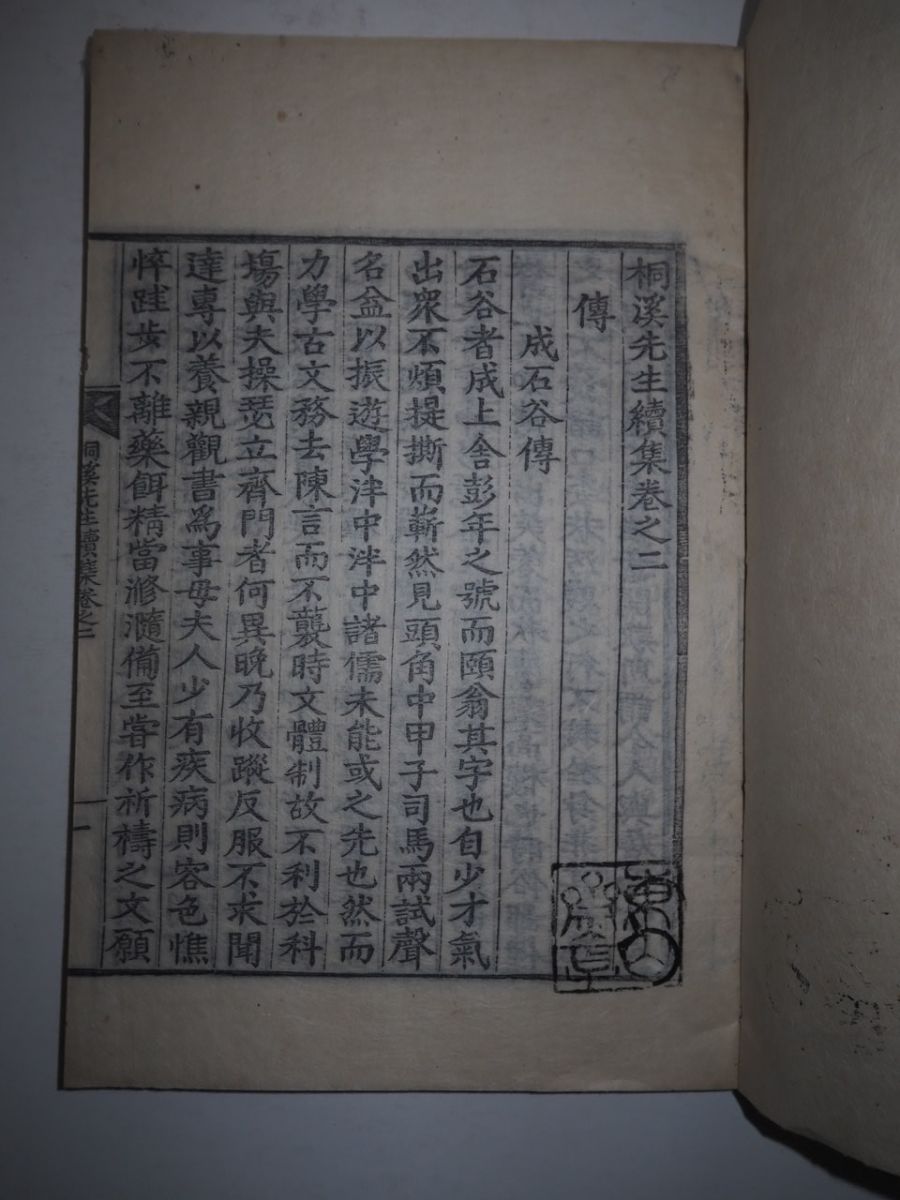 桐溪先生續集卷之二
傳
成石谷傳
石谷者成上舍彭年之號而頤翁其字也自少才氣
出衆不煩提撕而蘄然見頭角中甲子司馬兩試聲
名益以振遊學泮中泮中諸儒未能或之先也然而
力學古文務去陳言而不襲時文體制故不利於科
場與夫操瑟立齊門者何異晚乃收蹤反服不求聞
達專以養親觀書爲事母夫人少有疾病則容色憔
悴跬步不離藥餌精當滫瀡備至嘗作祈禱之文願
桐溪先生續集卷之二
一